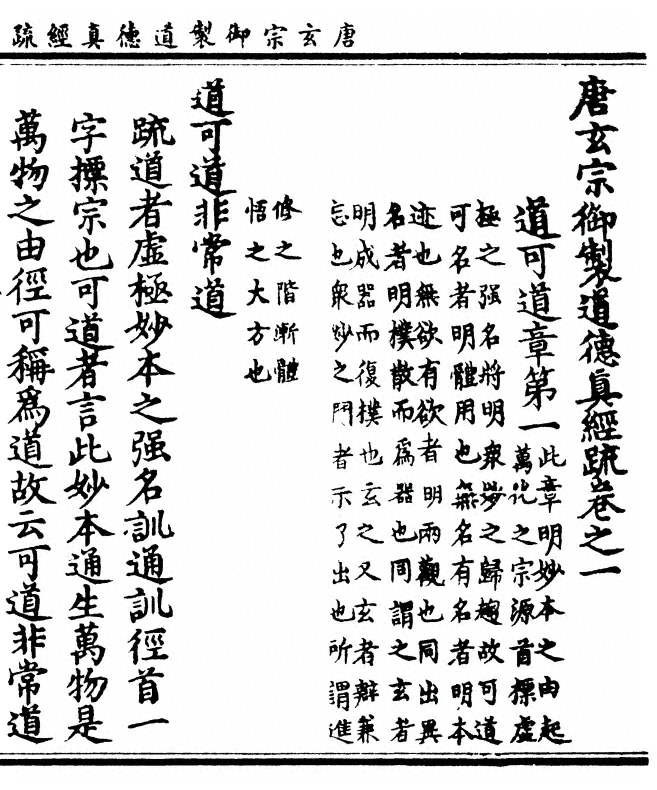 唐玄宗御製道德真經疏
唐玄宗御製道德真經疏卷之一
道可道章第一
此章明妙本之由起
萬化之宗源首摽虛
極之强名將明衆妙之歸趣故可道
可名者明體用也無名有名者明本
迹也無欲有欲者明兩觀也同出異
名者明樸散而爲器也同謂之玄者
明成器而復樸也玄之又玄者辯兼
忘也衆妙之門者示了出也所謂進
修之階漸體
悟之大方也
道可道非常道
疏道者虛極妙本之强名訓通訓徑首一
字摽宗也可道者言此妙本通生萬物是
萬物之由徑可稱爲道故云可道非常道